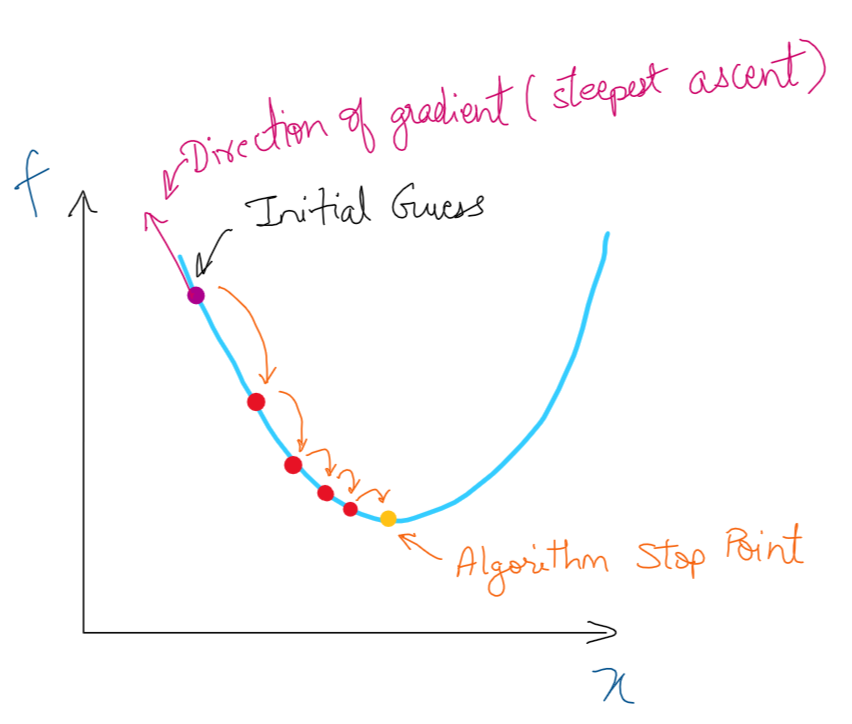 Direction of gradient (steepest ascent)
f
Initial Guess
Algorithm Stop Point
x